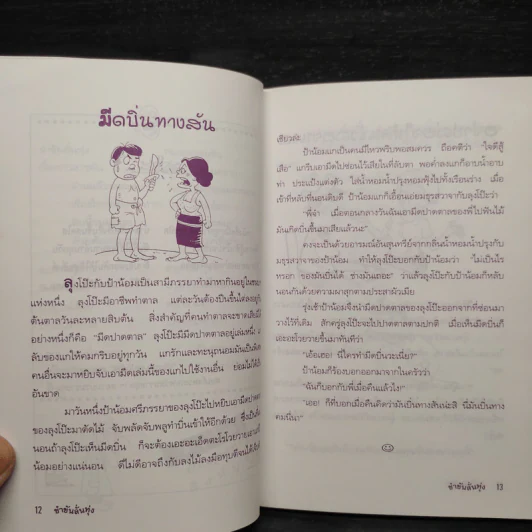 มีดบิ่นทางสัน
ลุงโป๊ะกับป้าน้อมเป็นสามีภรรยาทำมาหากินอยู่ใน
แห่งหนึ่ง ลุงโป๊ะมีอาชีพทำตาล แต่ละวันต้องปีนขึ้นใดลงอยู่กั
ต้นตาลวันละหลายสิบต้น สิ่งสำคัญที่คนทำตาลจะขาดเสียมิไ
อย่างหนึ่งก็คือ "มีดปาดตาล" ลุงโป๊ะมีมีดปาดตาลอยู่เล่มหนึ่ง
ลับของแกให้คมกริบอยู่ทุกวัน แกรักและทะนุถนอมมันเป็นที่สุด
คนอื่นจะมาหยิบจับเอามีดเล่มนี้ของแกไปใช้งานอื่น ย่อมไม่ได้เป็
อันขาด
มาวันหนึ่งป้าน้อมศรีภรรยาของลุงโป๊ะไปหยิบเอามีดปาดตาล
ของลุงโป๊ะมาตัดไม้ จับพลัดจับพลูทำบิ่นเข้าให้อีกด้วย ซึ่งเป็นที่
นอนถ้าลุงโป๊ะเห็นมีดบิ่น ก็จะต้องเอะอะเอ็ดตะโรโวยวายเอากับป้า
น้อมอย่างแน่นอน ดีไม่ดีอาจถึงกับลงไม้ลงมือทุบตีจนได้
12 ขำขันลั่นทุ่ง
เชียวล่ะ
ป้าน้อมแกเป็นคนมีไหวพริบพอสมควร ถือคติว่า "ใจดีสู้
เสือ" แกรีบเอามีดไปซ่อนไว้เสียในที่ลับตา พอค่ำลงแกก็อาบน้ำอาบ
ท่า ประแป้งแต่งตัว ใส่น้ำหอมน้ำปรุงหอมฟุ้งไปทั้งเรือนร่าง เมื่อ
เข้าที่หลับที่นอนดิบดี ป้าน้อมแกก็เอื้อนเอ่ยมธุรสวาจากับลุงโป๊ะว่า
"พี่จ๋า เมื่อตอนกลางวันฉันเอามีดปาดตาลของพี่ไปฟันไม้
มันเกิดบิ่นขึ้นมาเสียแล้วนะ"
คงจะเป็นด้วยอารมณ์อันสุนทรีย์จากกลิ่นน้ำหอมน้ำปรุงกับ
มธุรสวาจาของป้าน้อม ทำให้ลุงโป๊ะบอกกับป้าน้อมว่า "ไม่เป็นไร
หรอก ของมันบิ่นได้ ช่างมันเถอะ" ว่าแล้วลุงโป๊ะกับป้าน้อมก็หลับ
นอนกันด้วยความผาสุกตามประสาผัวเมีย
รุ่งเช้าป้าน้อมจึงนำมีดปาดตาลของลุงโป๊ะออกจากที่ซ่อนมา
วางไว้ที่เดิม สักครู่ลุงโป๊ะจะไปปาดตาลตามปกติ เมื่อเห็นมีดบิ่นก็
เอะอะโวยวายขึ้นมาทันที
"เอ้อเฮอ! นี่ใครทำมีดบิ่นวะเนี่ย?"
ป้าน้อมก็ร้องบอกออกมาจากในครัวว่า
"ฉันก็บอกกับพี่เมื่อคืนแล้วไง!"
"เออ! ก็ที่บอกเมื่อคืนคิดว่ามันบิ่นทางสันน่ะสิ นี่มันบิ่นทาง
คมนี่นา"
ขำขันลั่นทุ่ง 13